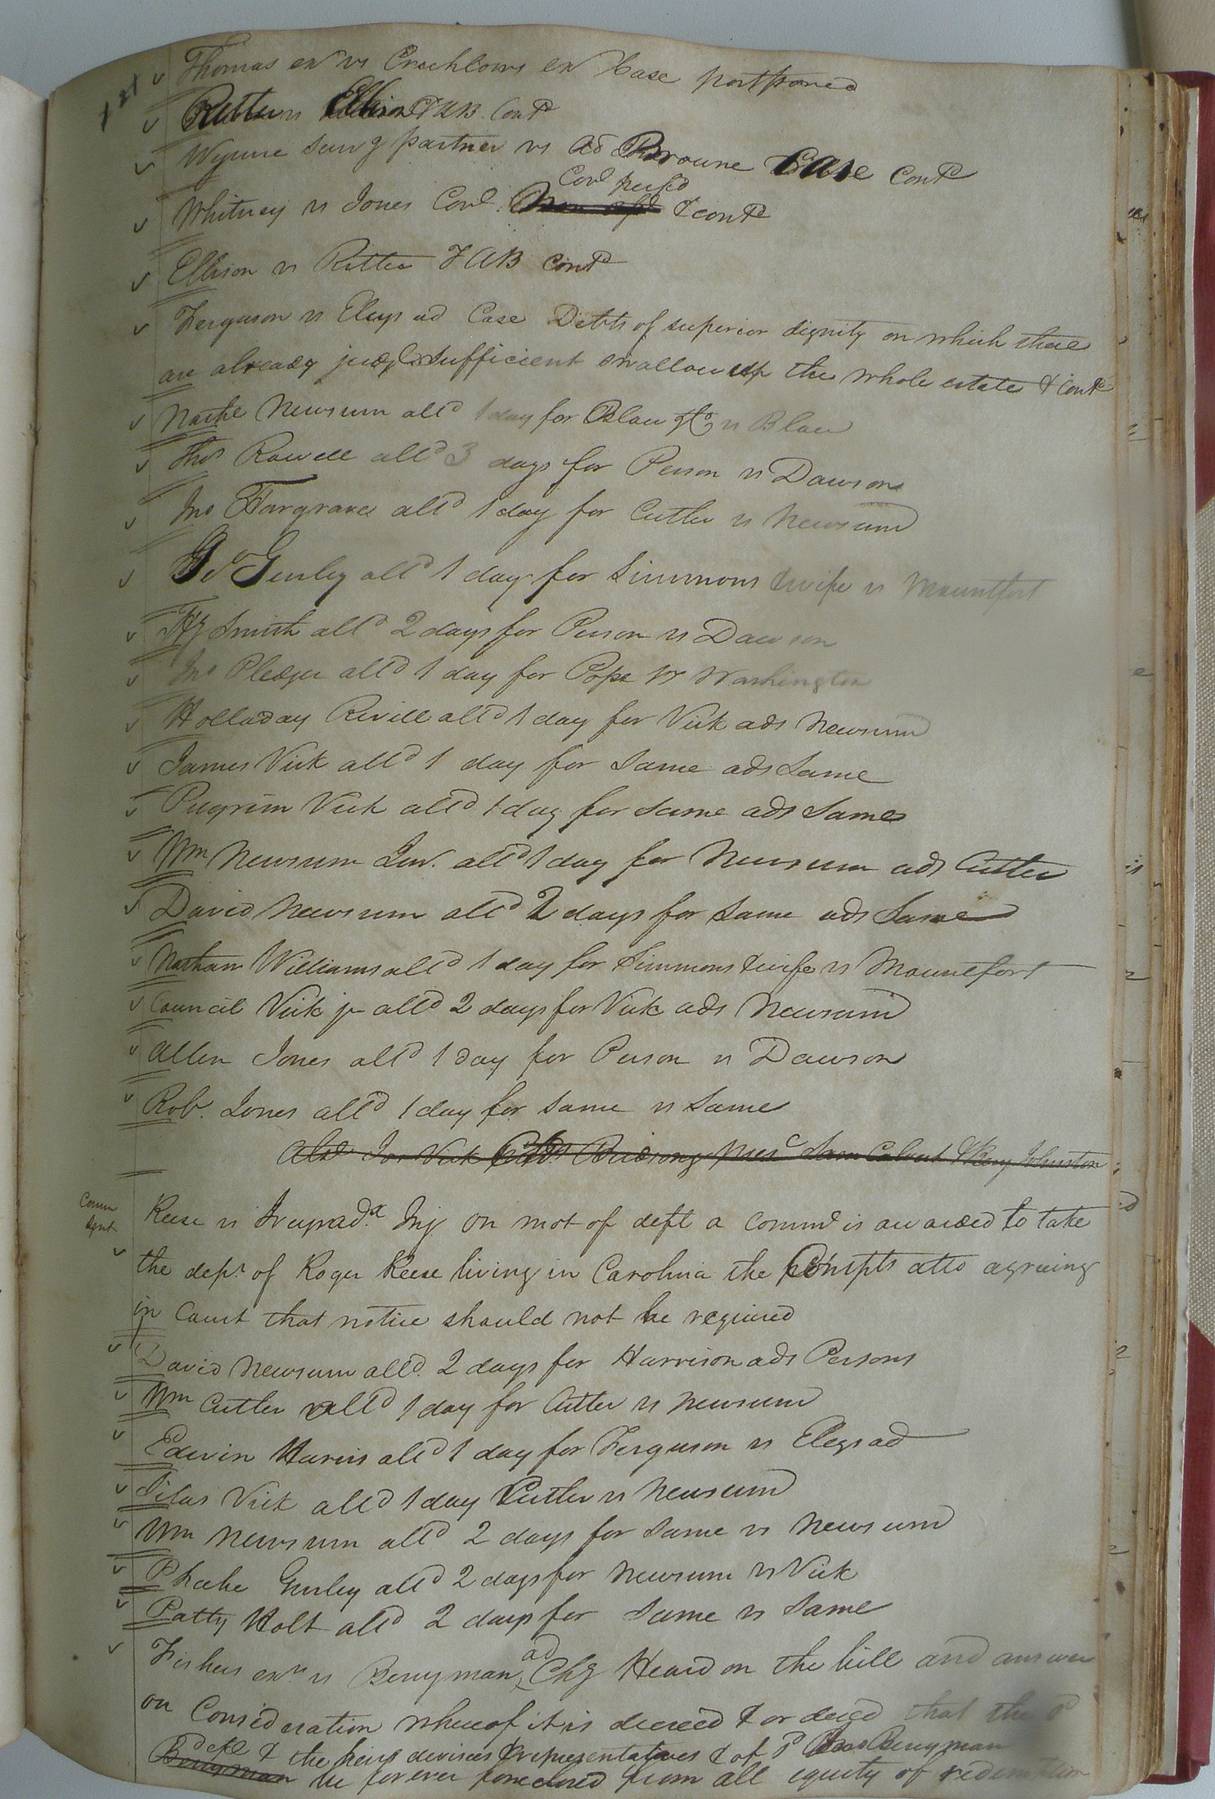 121
Thomas exr vs Crechlows exr Case postponed
Ritter vs Ellison T A B Contd
Wynne survg partner vs ad Browne Case Contd
Covt perfd
Whitney vs Jones Covt & contd
Ellison vs Ritter T A B Contd
Ferguson vs Eleys ad Case Debts of superior dignity on which there
are already judgts sufficient swallow up the whole estate & contd
Newsum alld 1 day for Blow &c vs Blow
Thos Rowell alld 3 days for Person vs Dawson
Jno Hargrave alld 1 day for Cutler vs Newsum
Gurley alld 1 day for Simmons & wife vs Mountfort
Smith alld 2 days for Person vs Dawson
Jno Pledger alld 1 day for Pope vs Washington
Holladay Revill alld 1 day for Vick ads Newsum
James Vick alld 1 day for Same ads Same
Pilgrim Vick alld 1 day for Same ads Same
Wm Newsum Junr. alld 1 day for Newsum ads Cutler
David Newsum alld 2 days for Same ads Same
Nathan Williams alld 1 day for Simmons & wife vs Mountfort
Council Vick jr alld 2 days for Vick ads Newsum
Allen Jones alld 1 day for Person vs Dawson
Rob. Jones alld 1 day for Same vs Same
Jos Vick Birdsong Sam Calvert & Benj Johnston
Comm
Reese vs Inj on mot of deft a Commn is awarded to take
the depn of Roger Reese living in Carolina the plts atto agreeing
in Court that notice should not be required
David Newsum alld. 2 days for Harrison ads Persons
Wm Cutler alld 1 day for Cutler vs Newsum
Edwin Harris alld 1 day for Ferguson vs Eleys ad
Silas Vick alld 1 day Cutler vs Newsum
Wm Newsum alld 2 days for Same vs Newsum
Phoebe Gurley alld 2 days for Newsum vs Vick
Patty Holt alld 2 days for Same vs Same
ad
Fishers exrs vs Berryman Chy Heard on the bill and answer
on Consideration whereof it is decreed & ordered that the
deft & the heirs devisees & representatives of Berryman
Berryman be forever foreclosed from all equity of redemption